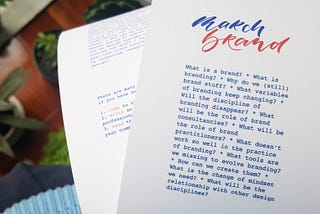 there are many
if you have
1. Come to
2.
3. Read
your
March
brand
What is a brand? * What is
branding? * Why do we (still)
brand stuff? * What variables
of branding keep changing? *
Will the discipline of
branding disappear? * What
will be the role of brand
consultancies? * What will be
the role of brand
practitioners? * What doesn't
work so well in the practice
of branding? * What tools are
we missing to evolve branding?
* How can we create them? *
What is the change of mindset
we need? * What will be the
relationship with other design
disciplines?